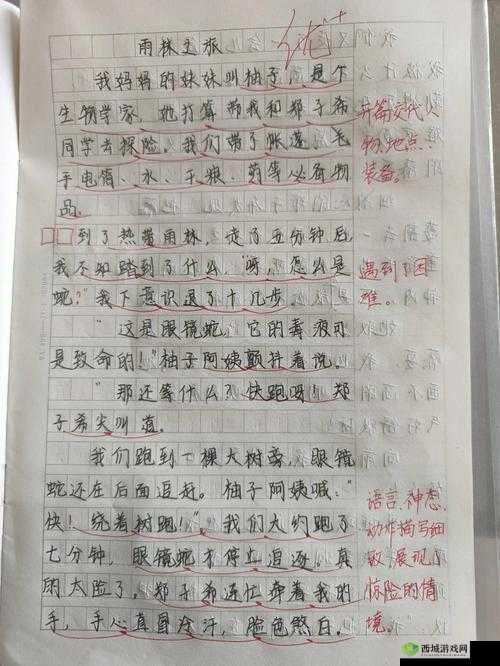 雨林之旅
优+
我妈妈的妹妹叫柚子，是个
生物学家，她打算带我和郑子希
同学去探险。我们带了帐篷、毛
手电筒、水、干粮、剪等必备物
品。
开篇交代人
物、地点、
装备。
到了热带雨林，走了五分钟后，
我不知踏到了什么，“呀，怎么是
蛇？”我下意识退了十几步。
遇到了困
难。
“这是眼镜蛇，它的毒液可
是致命的！”柚子阿姨颤抖着说。
“那还等什么？快跑呀！”郑
子希尖叫道。
我们跑到一棵大树旁，眼镜
蛇还在后面追赶。柚子阿姨喊：“
快！绕着树跑！”，我们大约跑了
七分钟，眼镜蛇才停止追逐。真
的太险了，郑子希连忙牵着我的
手，手心直冒冷汗，脸色煞白。
语言、神态、
动作描写细
致，展现了
惊险的情
境。
西城游戏网